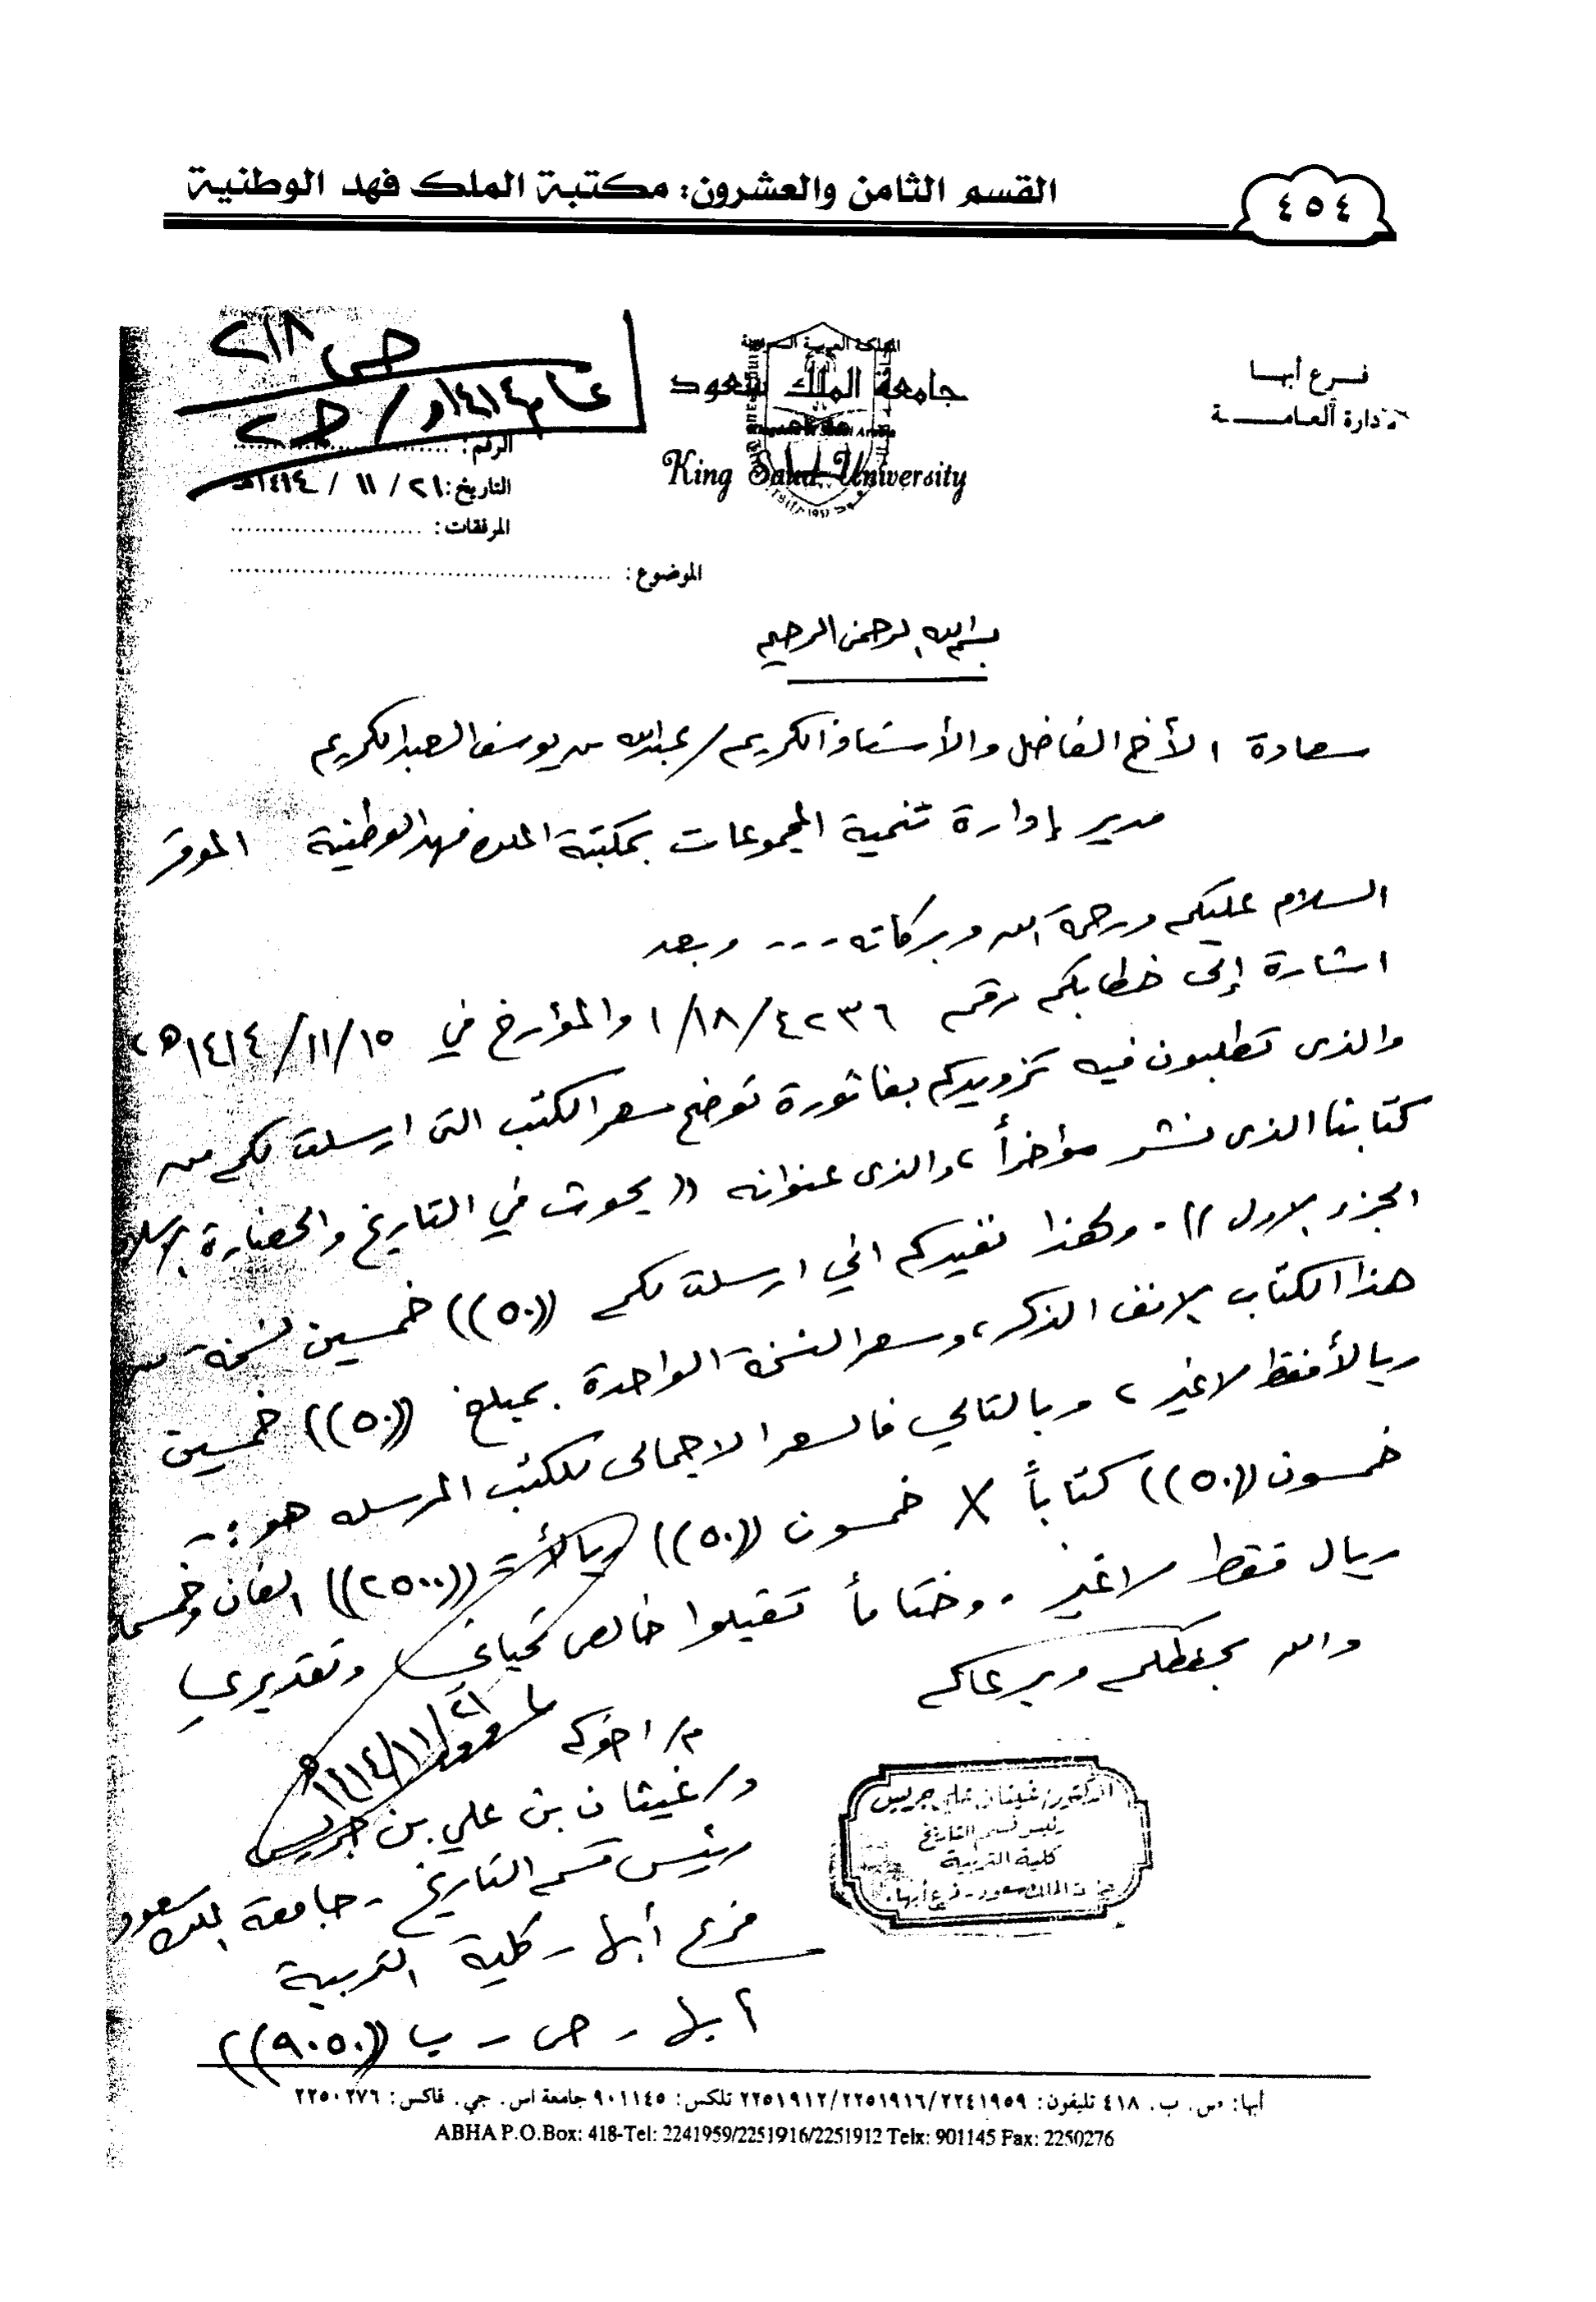 القسم الثامن والعشرون: مكتبة الملك فهد الوطنية
٤٥٤
ص ٢١٨
عام ١٤١٤هـ / ج٢
المملكة العربية السعودية
جامعة الملك سعود
King Saud University
فرع أبها
الادارة العامة
الرقم:
التاريخ: ٢١ / ١١ / ١٤١٤هـ
المرفقات:
الموضوع:
بسم الله الرحمن الرحيم
سعادة الأخ الفاضل والأستاذ الكريم / عبدالله بن يوسف العبدالكريم
مدير إدارة تنمية المجموعات بمكتبة الملك فهد الوطنية الموقر
السلام عليكم ورحمة الله وبركاته --- وبعد
اشارة إلى خطابكم رقم ٤٢٣٦/١٨/١ والمؤرخ في ١٤١٤/١١/١٥هـ،
والذى تطلبون فيه تزويدكم بفاتورة توضح سعر الكتب التى ارسلت لكم من
كتابنا الذى نشر مؤخراً، والذى عنوانه ((بحوث في التاريخ والحضارة الاسلامية
الجزء الاول)). ولهذا نفيدكم اني ارسلت لكم ((٥٠)) خمسين نسخة من
هذا الكتاب الانف الذكر، وسعر النسخة الواحدة بمبلغ ((٥٠)) خمسين
ريالاً فقط لاغير، وبالتالي فالسعر الاجمالى للكتب المرسله هو:-
خمسون ((٥٠)) كتاباً × خمسون ((٥٠)) ريالاً = ((٢٥٠٠)) الفان وخمسمائة
ريال فقط لاغير. وختاماً تقبلوا خالص تحياتي وتقديري
والله يحفظكم ويرعاكم
م/ اخوكم
١٤١٤/١١/٢١هـ
د/ غيثان بن علي بن جريس
رئيس قسم التاريخ - جامعة الملك سعود
فرع أبها - كلية التربية
أبها - ص - ب ((٩٠٥٠))
الدكتور/ غيثان علي جريس
رئيس قسم التاريخ
كلية التربية
جامعة الملك سعود - فرع أبها
أبها: ص. ب. ٤١٨ تليفون: ٢٢٤١٩٥٩/٢٢٥١٩١٦/٢٢٥١٩١٢ تلكس: ٩٠١١٤٥ جامعة اس. جي. فاكس: ٢٢٥٠٢٧٦
ABHA P.O.Box: 418-Tel: 2241959/2251916/2251912 Telx: 901145 Fax: 2250276